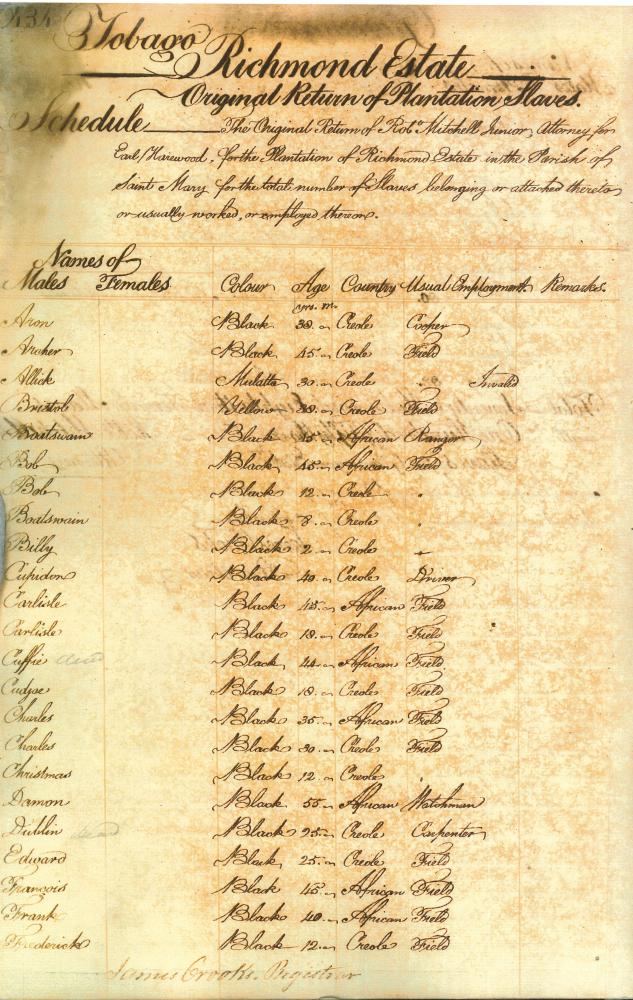 434
Tobago
Richmond Estate
Original Return of Plantation Slaves.
Schedule The Original Return of Robt Mitchell Junior, Attorney for
Earl Harewood, for the Plantation of Richmond Estate in the Parish of
Saint Mary for the total number of Slaves belonging or attached thereto
or usually worked, or employed thereon.
Names of
Males Females Colour Age Country Usual Employment Remarks.
yrs. m.
Aron Black 30 Creole Cooper
Archer Black 45 Creole Field
Allick Mulatto 30 Creole Invalid
Bristol Yellow Creole Field
Boatswain Black African Rangor
Bob Black 45 African Field
Bob Black 12 Creole
Boatswain Black 8 Creole
Billy Black 2 Creole
Cupidon Black 40 Creole Driver
Carlisle Black 45 African Field
Carlisle Black 18 Creole Field
Cuffie dead Black 44 African Field
Cudjoe Black 18 Creole Field
Charles Black 35 African Field
Charles Black 30 Creole Field
Christmas Black 12 Creole
Damon Black 55 African Watchman
Dublin dead Black 25 Creole Carpenter
Edward Black 25 Creole Field
François Black 45 African Field
Frank Black 40 African Field
Frederick Black 12 Creole Field
James Crooks. Registrar